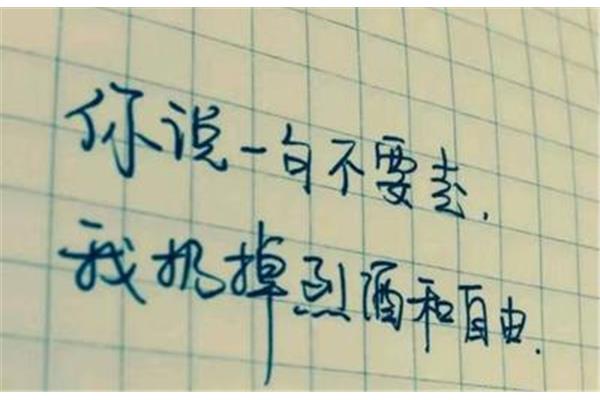 你说一句不要走,
我扔掉烈酒和自由.